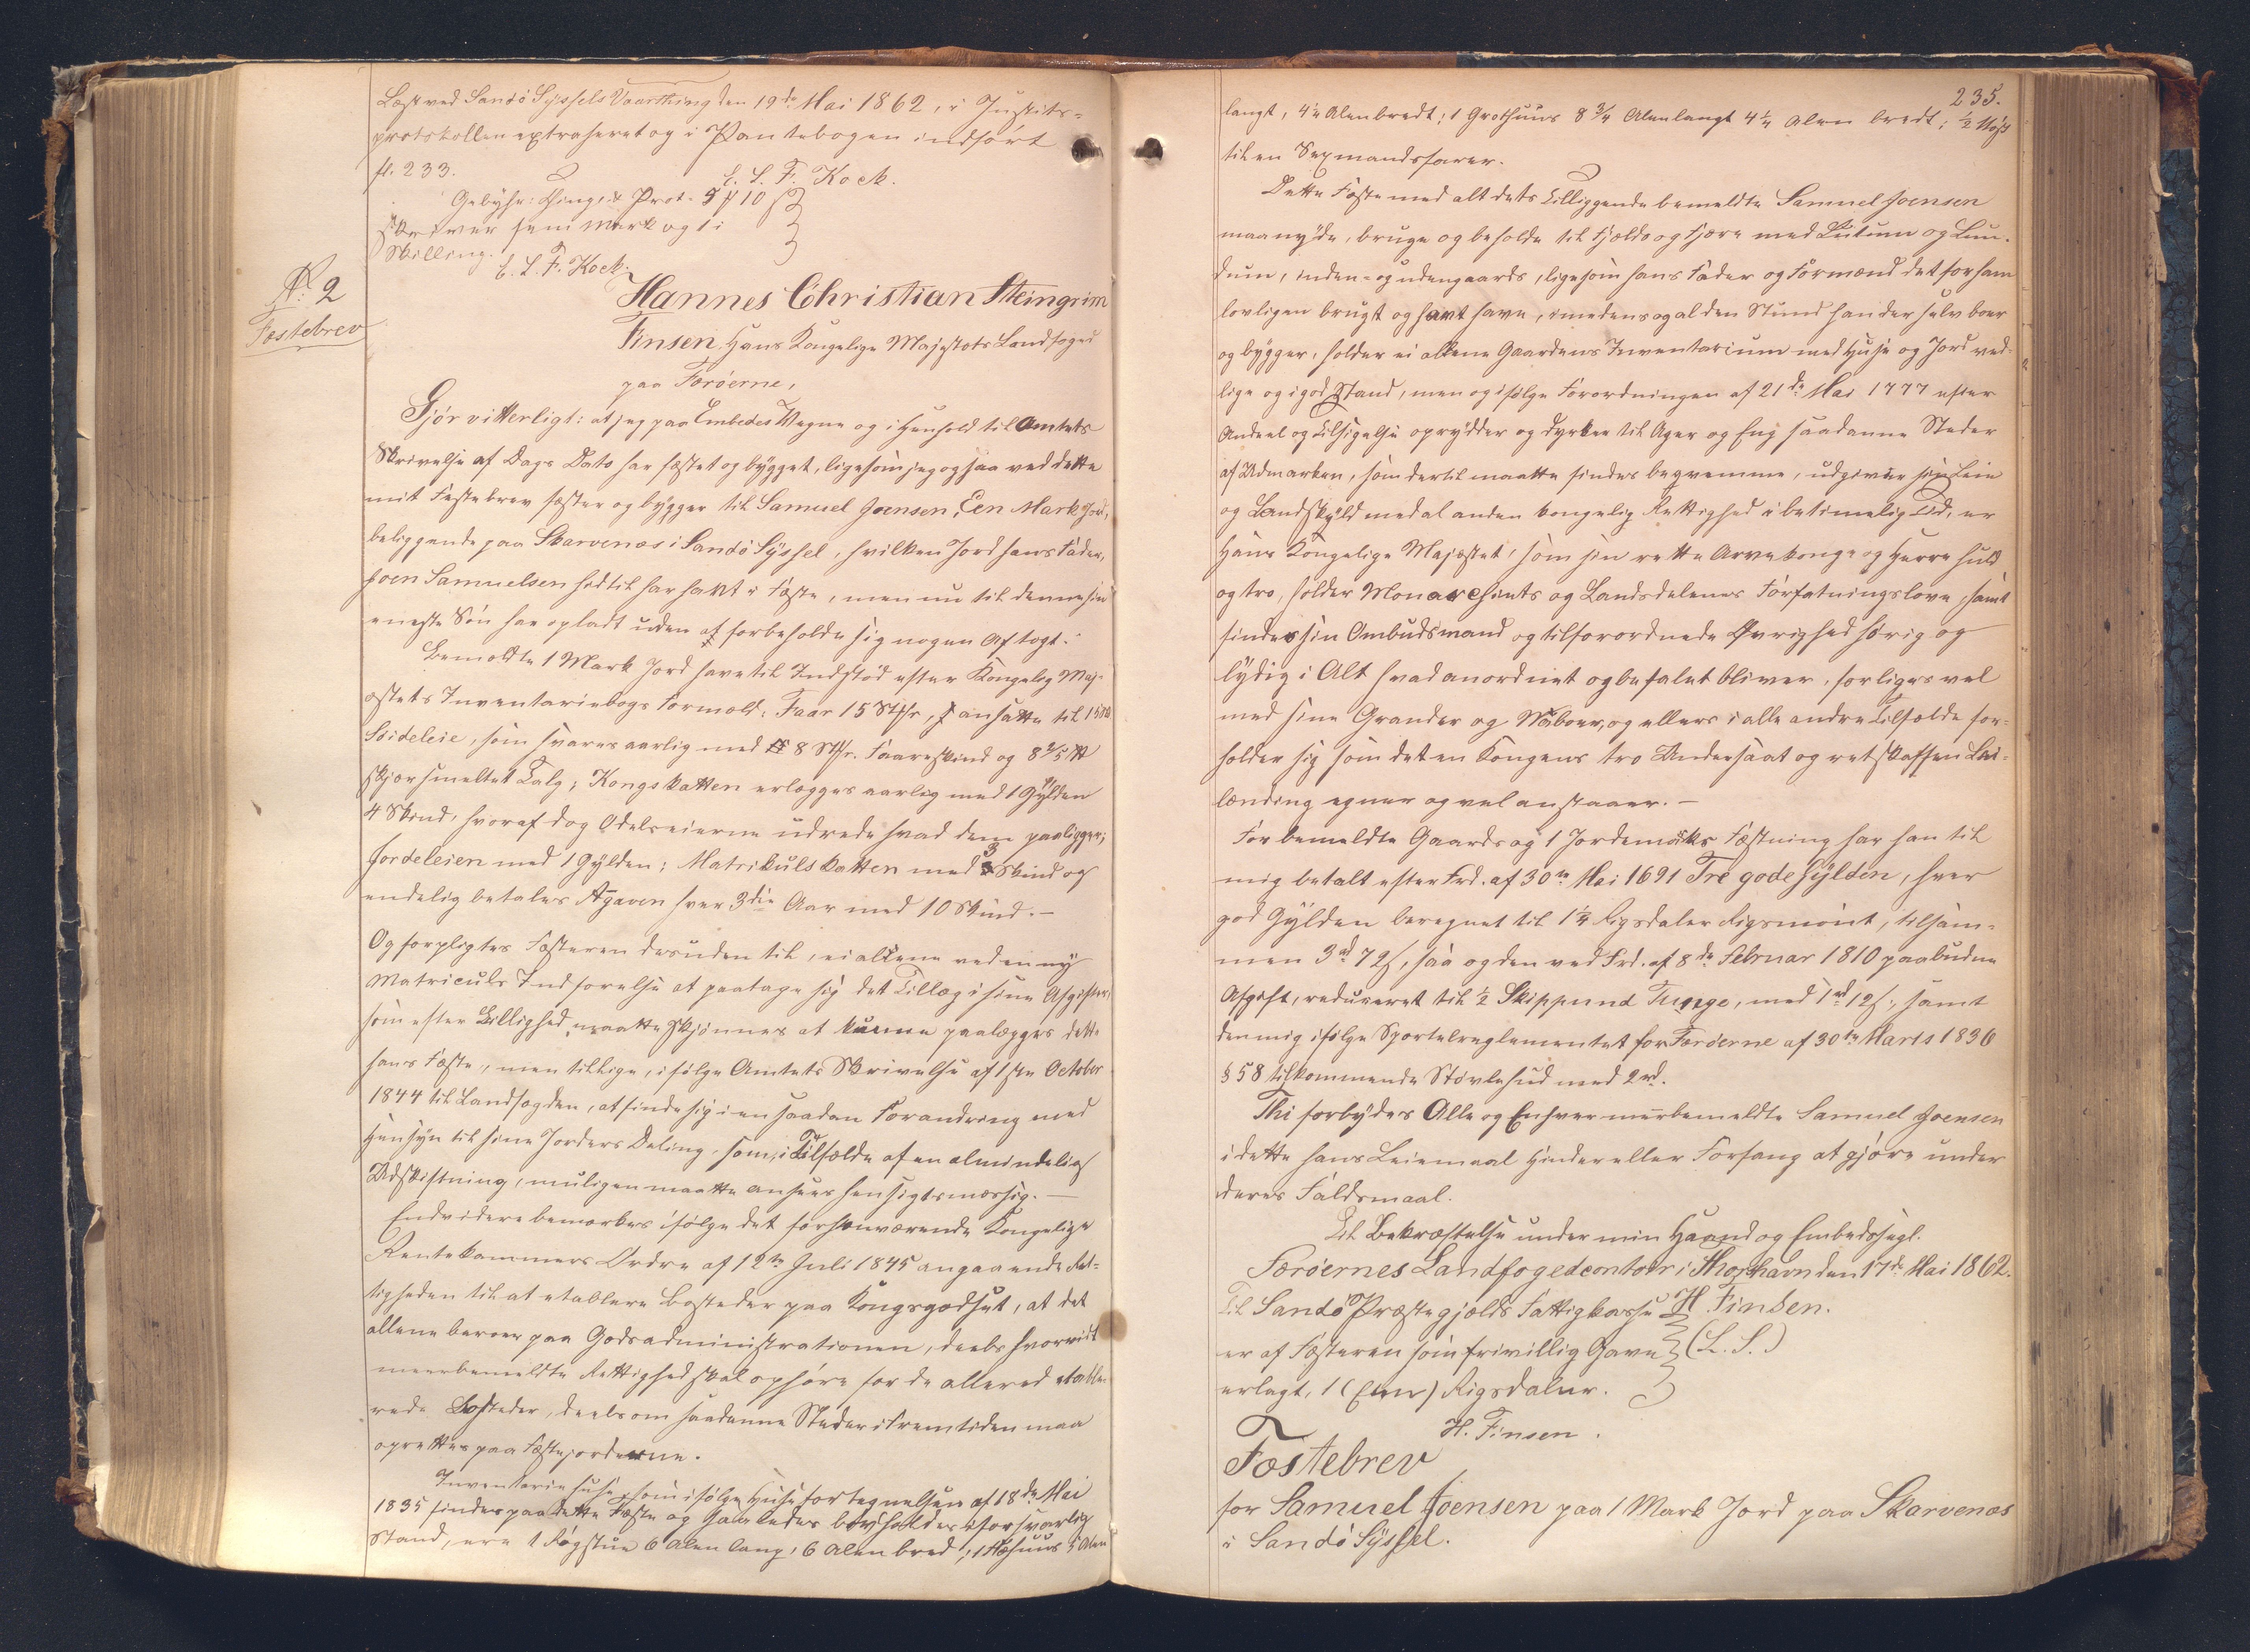 Læst ved Sandö Syssels Vaarthing den 19de Mai 1862, i Justits-
protokollen extraheret og i Pantebogen indfört
fl. 233.
E. L. F. Kock.
Gebyhr: Thing. & Prot. 5 # 10 ß
Skriver fem Mark og ti
Skilling.
E. L. F. Kock.
№ 2
Festebrev
Hannes Christian Steingrim
Finsen, Hans Kongelige Majestæts Landfoged
paa Færöerne,
Gjör vitterligt: at jeg paa Embedes Vegne og i Henhold til Amtets
Skrivelse af Dags Dato har fæstet og bygget, ligesom jeg ogsaa ved dette
mit Festebrev fæster og bygger til Samuel Joensen, Een Mark Jord,
beliggende paa Skarvenæs i Sandö Syssel, hvilken Jord hans Fader,
Joen Samuelsen hidtil har havt i Fæste, men nu til denne sin
eneste Sön har opladt uden at forbeholde sig nogen Aftægt.
Bemeldte 1 Mark Jord have til Indstöd efter Kongelig Maj-
estæts Inventariebogs Formeld: Faar 15 Stkr, ansatte til 15de
Söideleie, som svares aarlig med 8 Stkr. Faareskind og 8 3/5 ℔
skjærsmeltet Talg; Kongskatten erlægges aarlig med 1 Gylden
4 Skind, hvoraf dog Odelseierne udrede hvad dem paaligger;
Jordeleien med 1 Gylden; Matrikulskatten med 3 Skind og
endelig betales Agaven hver 3die Aar med 10 Skind.—
Og forpligtes Fæsteren desuden til, ei allene ved en ny
Matriculs Indförelse at paatage sig det Tillæg i sine Afgifter,
som efter Billighed maatte skjönnes at kunne paalægges dette
hans Fæste, men tillige, ifölge Amtets Skrivelse af 1ste October
1844 til Landfogden, at finde sig i en saadan Forandring med
Hensyn til sine Jorders Deling, som, i Tilfælde af en almindelig
Udskiftning, muligen maatte ansees hensigtsmæssig. —
Endvidere bemærkes ifölge det forhenværende Kongelige
Rentekammers Ordre af 12te Juli 1845 angaaende Ret-
tigheden til at etablere Bosteder paa Kongsgodset, at det
allene beroer paa Godsadministrationen, deels hvorvidt
meerbemeldte Rettighed skal ophöre for de allered etable-
rede Bosteder, deels om saadanne Steder i Fremtiden maa
oprettes paa Fæstejorderne.
Inventariehuse, som ifölge Huusfortegnelsen af 18de Mai
1835 findes paa dette Fæste og saaledes bör holdes i forsvarlig
Stand, ere 1 Rögstue 6 Alen lang, 6 Alen bred; 1 Höhuus 5 Alen
235.
langt, 4 1/4 Alen bredt; 1 Grothuus 8 3/4 Alen langt 4 1/4 Alen bredt; 1/2 Nöst
til en Sexmandsfarer.
Dette Fæste med alt dets Tilliggende bemeldte Samuel Joensen
maa nyde, bruge og beholde til Fjelds og Fjære med Lutum og Lun-
dum, inden- og udengaards, ligesom hans Fader og Formænd det for ham
lovligen brugt og havt have, imedens og al den Stund han der selv boer
og bygger, holder ei allene Gaardens Inventarium med Huse og Jord ved-
lige og i god Stand, men og ifölge Forordningen af 21de Mai 1777 efter
Andeel og Tilsigelse oprydder og dyrker til Ager og Eng saadanne Steder
af Udmarken, som dertil maatte findes beqvemme, udgiver sin Leie
og Landskyld med al anden kongelig Rettighed i betimelig Tid, er
Hans Kongelige Majestæt, som sin rette Arvekonge og Herre huld
og tro, holder Monarchiets og Landsdelenes Forfatningslove, samt
findes sin Ombudsmand og tilforordnede Øvrighed hörig og
lydig i Alt hvad anordnet og befalet bliver, forliges vel
med sine Grander og Naboer, og ellers i alle andre Tilfælde for-
holder sig som det en Kongens tro Undersaat og retskaffen Lei-
lænding egner og vel anstaaer. —
For bemeldte Gaards og 1 Jordemarks Fæstning har han til
mig betalt efter Frd. af 30te Mai 1691 Tre gode Gylden, hver
god Gylden beregnet til 1 1/4 Rigsdaler Rigsmönt, tilsam-
men 3 rd 72 ß, saa og den ved Frd. af 8de Februar 1810 paabudne
Afgift, reduceret til 1/2 Skippund Tunge, med 1 rd 12 ß, samt
den mig ifölge Sportelreglementet for Færöerne af 30te Marts 1836
§ 58 tilkommende Stövlehud med 2 rd.
Thi forbydes Alle og Enhver meerbemeldte Samuel Joensen
i dette hans Leiemaal Hinder eller Forfang at gjöre under
deres Faldsmaal.
Til Bekræftelse under min Haand og Embedssegl.
Færöernes Landfogedcontoir i Thorshavn den 17de Mai 1862.
H. Finsen.
Til Sandö Præstegjelds Fattigkasse
er af Fæsteren som frivillig Gave
(L. S.)
erlagt, 1 (Een) Rigsdaler.
H. Finsen.
Fæstebrev
for Samuel Joensen paa 1 Mark Jord paa Skarvenæs
i Sandö Syssel.